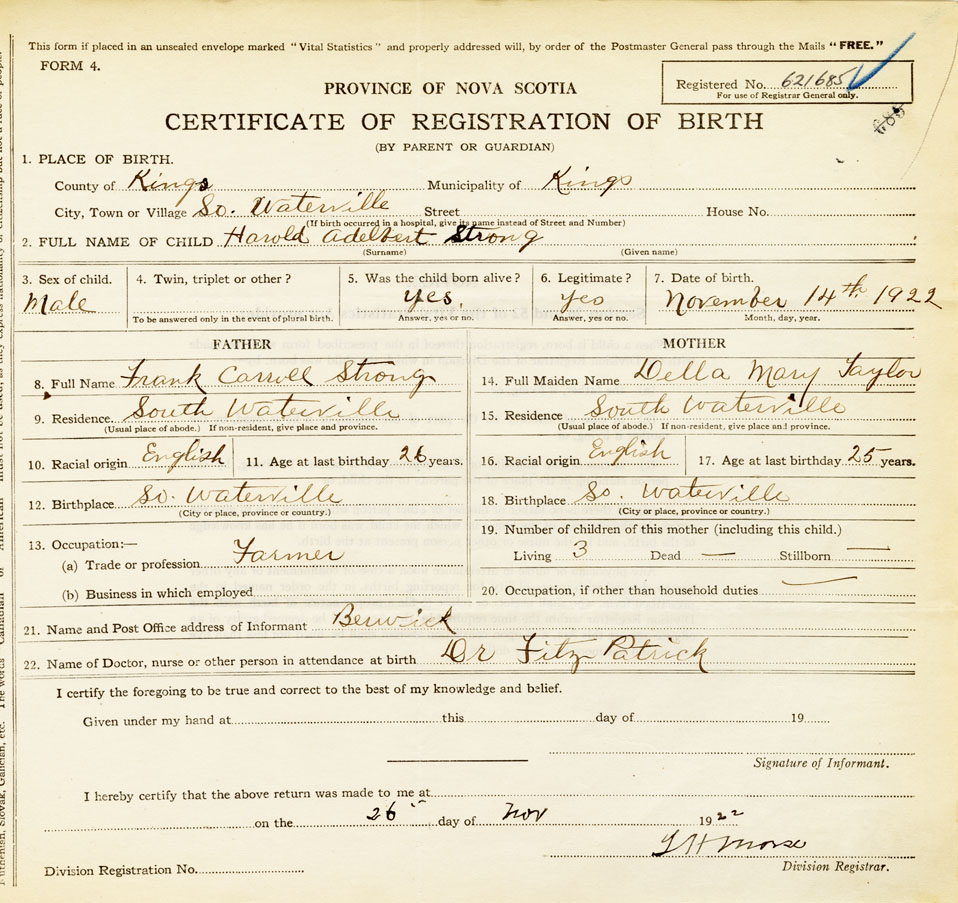 This form if placed in an unsealed envelope marked "Vital Statistics" and properly addressed will, by order of the Postmaster General pass through the Mails "FREE."
FORM 4.
Registered No. 621685
For use of Registrar General only.
685
PROVINCE OF NOVA SCOTIA
CERTIFICATE OF REGISTRATION OF BIRTH
(BY PARENT OR GUARDIAN)
1. PLACE OF BIRTH.
County of Kings Municipality of Kings
City, Town or Village So. Waterville Street House No.
(If birth occurred in a hospital, give its name instead of Street and Number)
2. FULL NAME OF CHILD Harold Adelbert Strong
(Surname) (Given name)
3. Sex of child. 4. Twin, triplet or other? 5. Was the child born alive? 6. Legitimate? 7. Date of birth.
Male yes. yes November 14th 1922
To be answered only in the event of plural birth. Answer, yes or no. Answer, yes or no. Month, day, year.
FATHER MOTHER
8. Full Name Frank Carroll Strong 14. Full Maiden Name Della Mary Taylor
9. Residence South Waterville 15. Residence South Waterville
(Usual place of abode.) If non-resident, give place and province. (Usual place of abode.) If non-resident, give place and province.
10. Racial origin English 11. Age at last birthday 26 years. 16. Racial origin English 17. Age at last birthday 25 years.
12. Birthplace So. Waterville 18. Birthplace So. Waterville
(City or place, province or country.) (City or place, province or country.)
19. Number of children of this mother (including this child.)
13. Occupation:—
(a) Trade or profession Farmer Living 3 Dead — Stillborn —
(b) Business in which employed 20. Occupation, if other than household duties —
21. Name and Post Office address of Informant Berwick
22. Name of Doctor, nurse or other person in attendance at birth Dr Fitz Patrick
I certify the foregoing to be true and correct to the best of my knowledge and belief.
Given under my hand at this day of 19
Signature of Informant.
I hereby certify that the above return was made to me at
on the 26 day of Nov 1922
Morse
Division Registration No. Division Registrar.